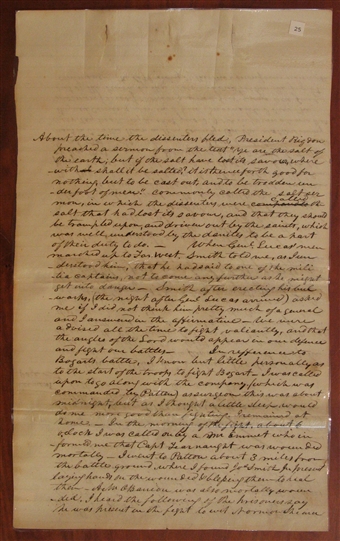 25
About the time the dissenters fled, President Rigdon
preached a sermon from the text "Ye are the salt of
the earth, but if the salt have lost its savour, where
with shall it be salted? it is thenceforth good for
nothing, but to be cast out, and to be trodden un
der foot of men." commonly called the salt ser
mon, in which the dissenters, were called
salt that had lost its savour, and that they should
be trampled upon, and driven out by the saints, which
was well understood by the Danites to be a part
of their duty to do. — When Genl. Lucas' men
marched up to Far West Smith told me, as I un
derstood him, that he had said to one of the mili
tia captains, not to come any further as he might
get into danger — Smith after erecting his bul
warks, (the night after Genl Lucas arrived) asked
me if I did not think him pretty much of a general
and I answered in the affirmative — We were
advised all the time to fight valiantly, and that
the angles of the Lord would appear in our defence
and fight our battles — In reference to
Bogarts battle, I know but little, personally, as
to the start of the troops to fight Bogart — I was called
upon to go along with the company, (which was
commanded by Patton) as surgeon this was about
midnight, but as I thought a little sleep would
do me more good than fighting I remained at
home — In the morning of the fight, about 6
o,clock I was called on by a Mr Emmit who in
formed me that Capt Fearnaught was wounded
mortally — I went to Patton about 3 miles from
the battle ground, where I found Jo Smith Jr present
laying hands on the wounded & blessing them to heal
them — A. Obanion was also mortally woun
ded, I heard the following of the prisoners say
he was present in the fight to wit Norman Shearer